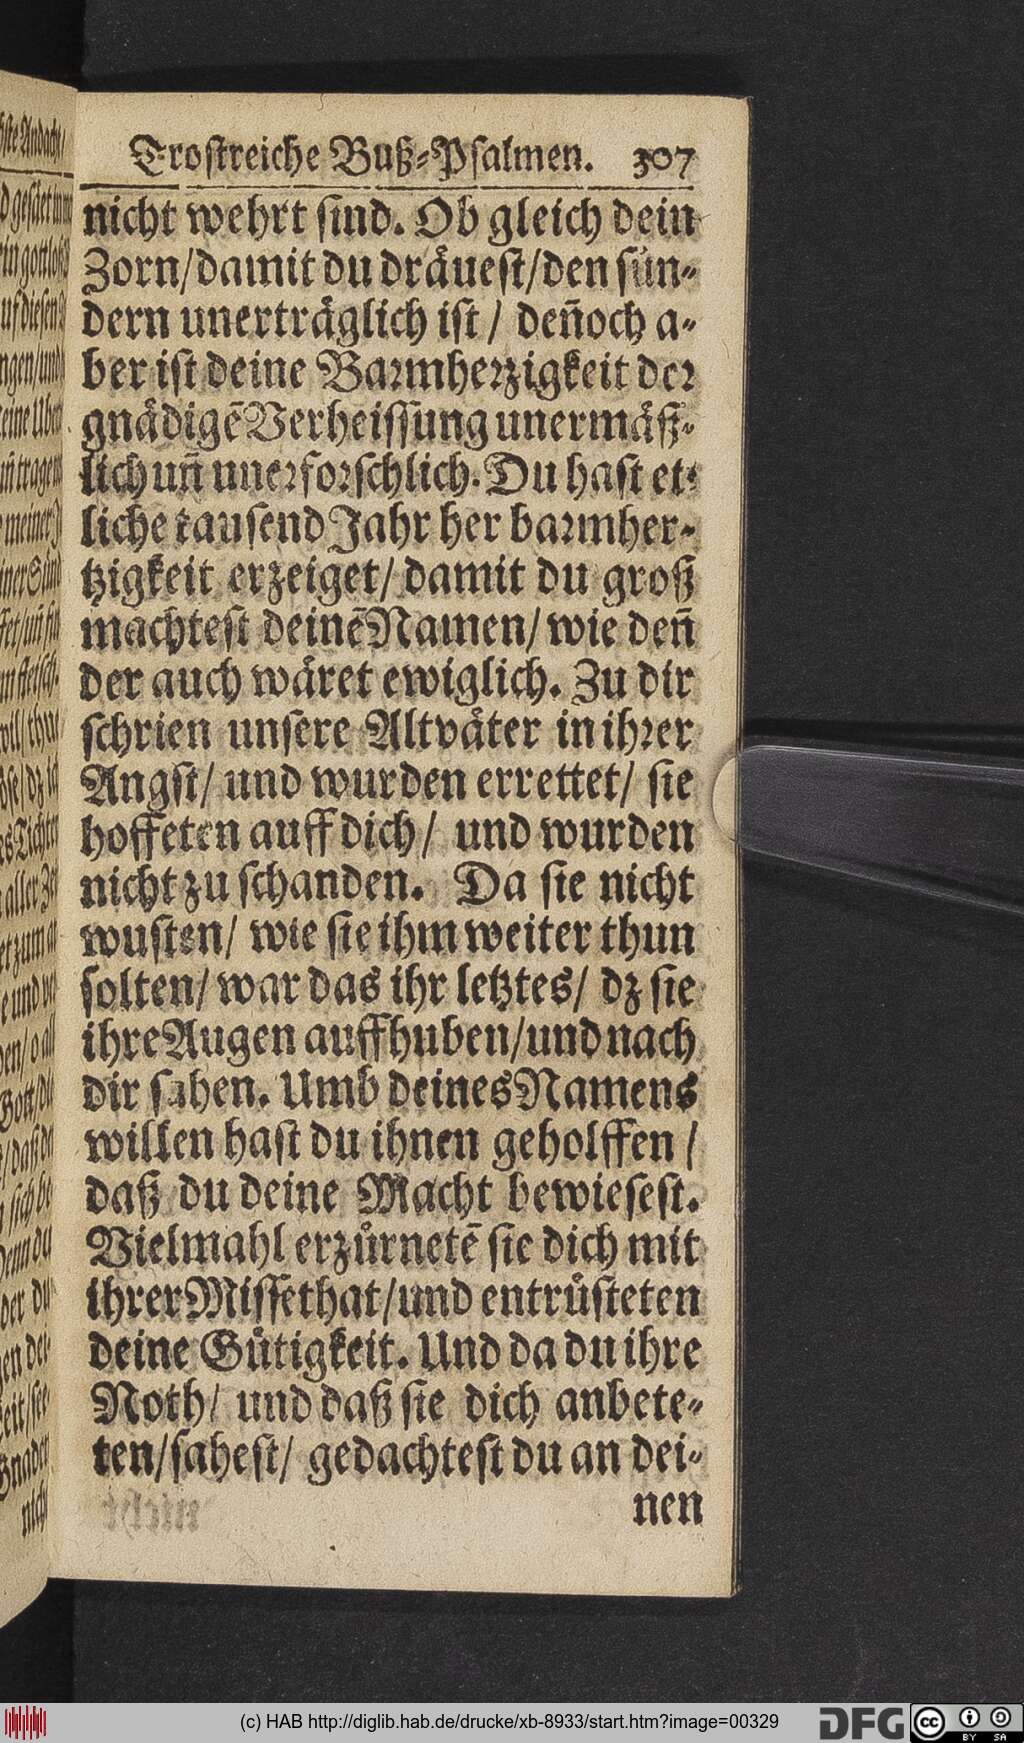 Trostreiche Buß-Psalmen. 307
nicht wehrt sind. Ob gleich dein
Zorn/damit du dräuest/den sün-
dern unerträglich ist / den̄och a-
ber ist deine Barmhertzigkeit der
gnädigē Verheissung unermäß-
lich un̄ unerforschlich. Du hast et-
liche tausend Jahr her barmher-
tzigkeit erzeiget/ damit du groß
machtest deinē Namen/ wie den̄
der auch wäret ewiglich. Zu dir
schrien unsere Altväter in ihrer
Angst/ und wurden errettet/ sie
hoffeten auff dich/ und wurden
nicht zu schanden. Da sie nicht
wusten/ wie sie ihm weiter thun
solten/ war das ihr letztes/ dz sie
ihre Augen auffhuben/und nach
dir sahen. Umb deines Namens
willen hast du ihnen geholffen /
daß du deine Macht bewiesest.
Vielmahl erzürnetē sie dich mit
ihrer Missethat/und entrüsteten
deine Gütigkeit. Und da du ihre
Noth/ und daß sie dich anbete-
ten/sahest/ gedachtest du an dei-
nen
(c) HAB http://diglib.hab.de/drucke/xb-8933/start.htm?image=00329
DFG
cc BY SA